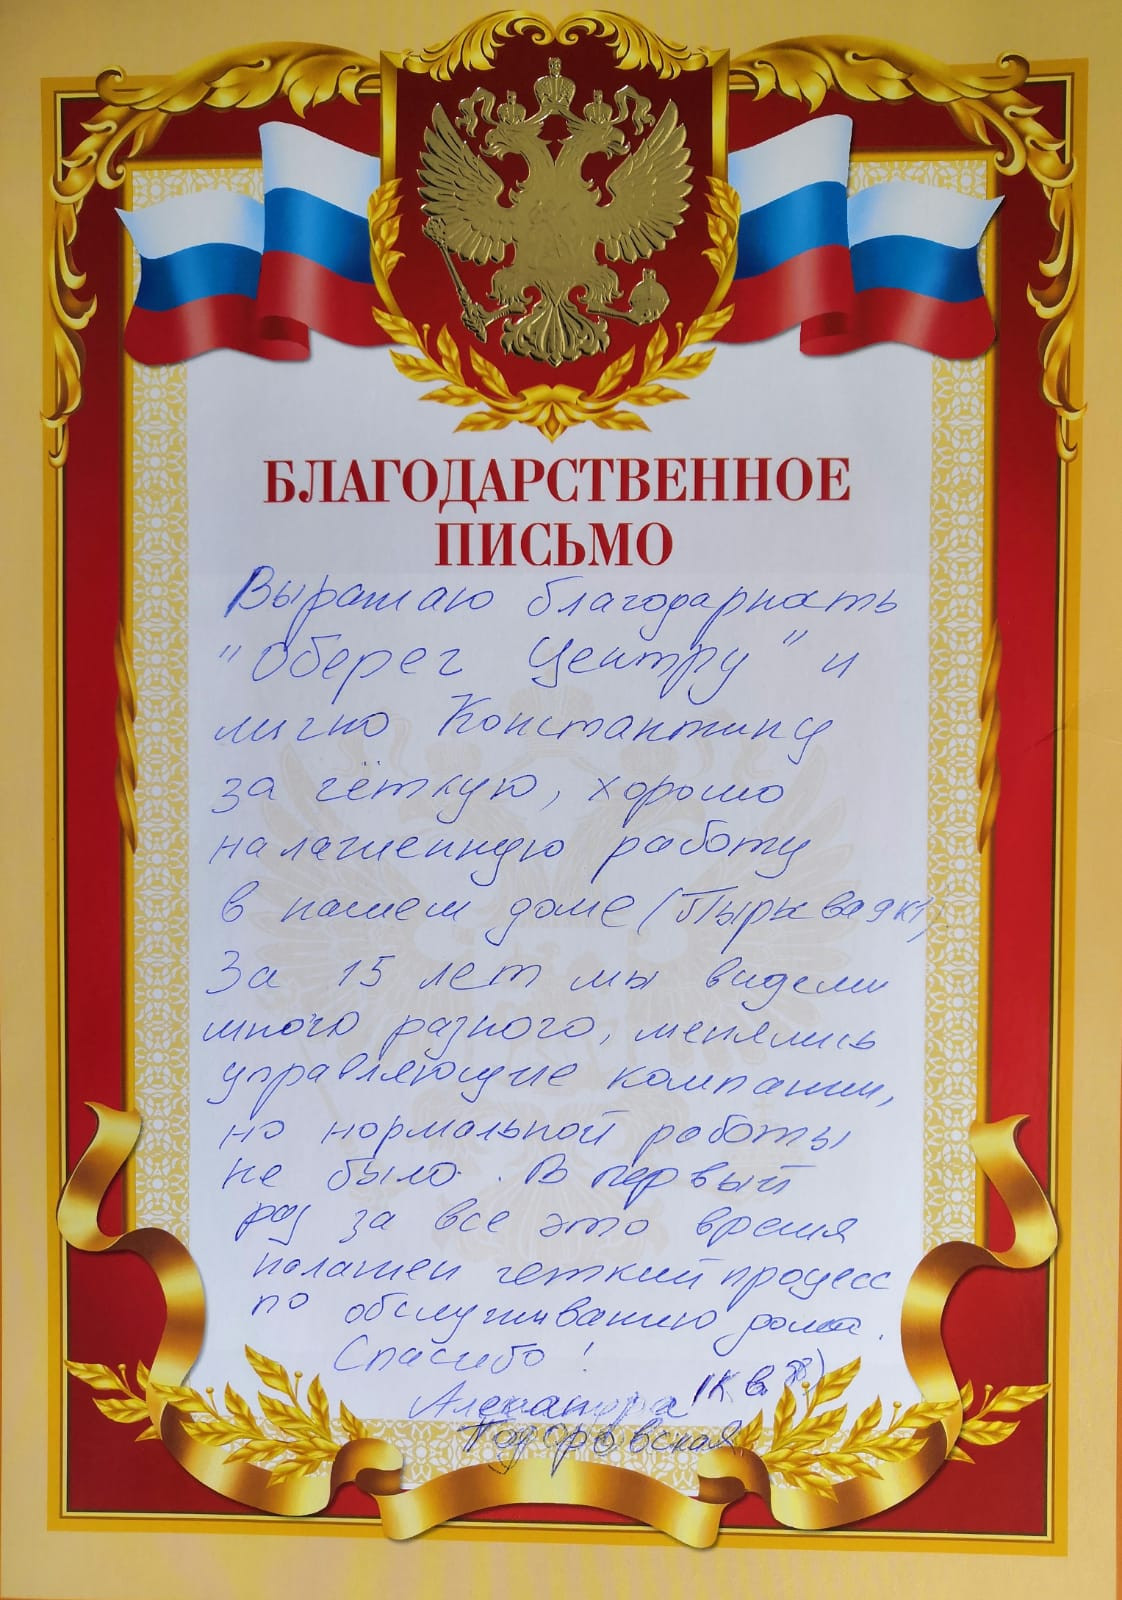 БЛАГОДАРСТВЕННОЕ
ПИСЬМО
Выражаю благодарность
"Оберег Центру" и
лично Константину
за чёткую, хорошо
налаженную работу
в нашем доме (
За 15 лет мы видели
много разного, менялись
управляющие компании,
но нормальной работы
не было. В первый
раз за все это время
налажен четкий процесс
по обслуживанию дома.
Спасибо!
Александра (Кв.